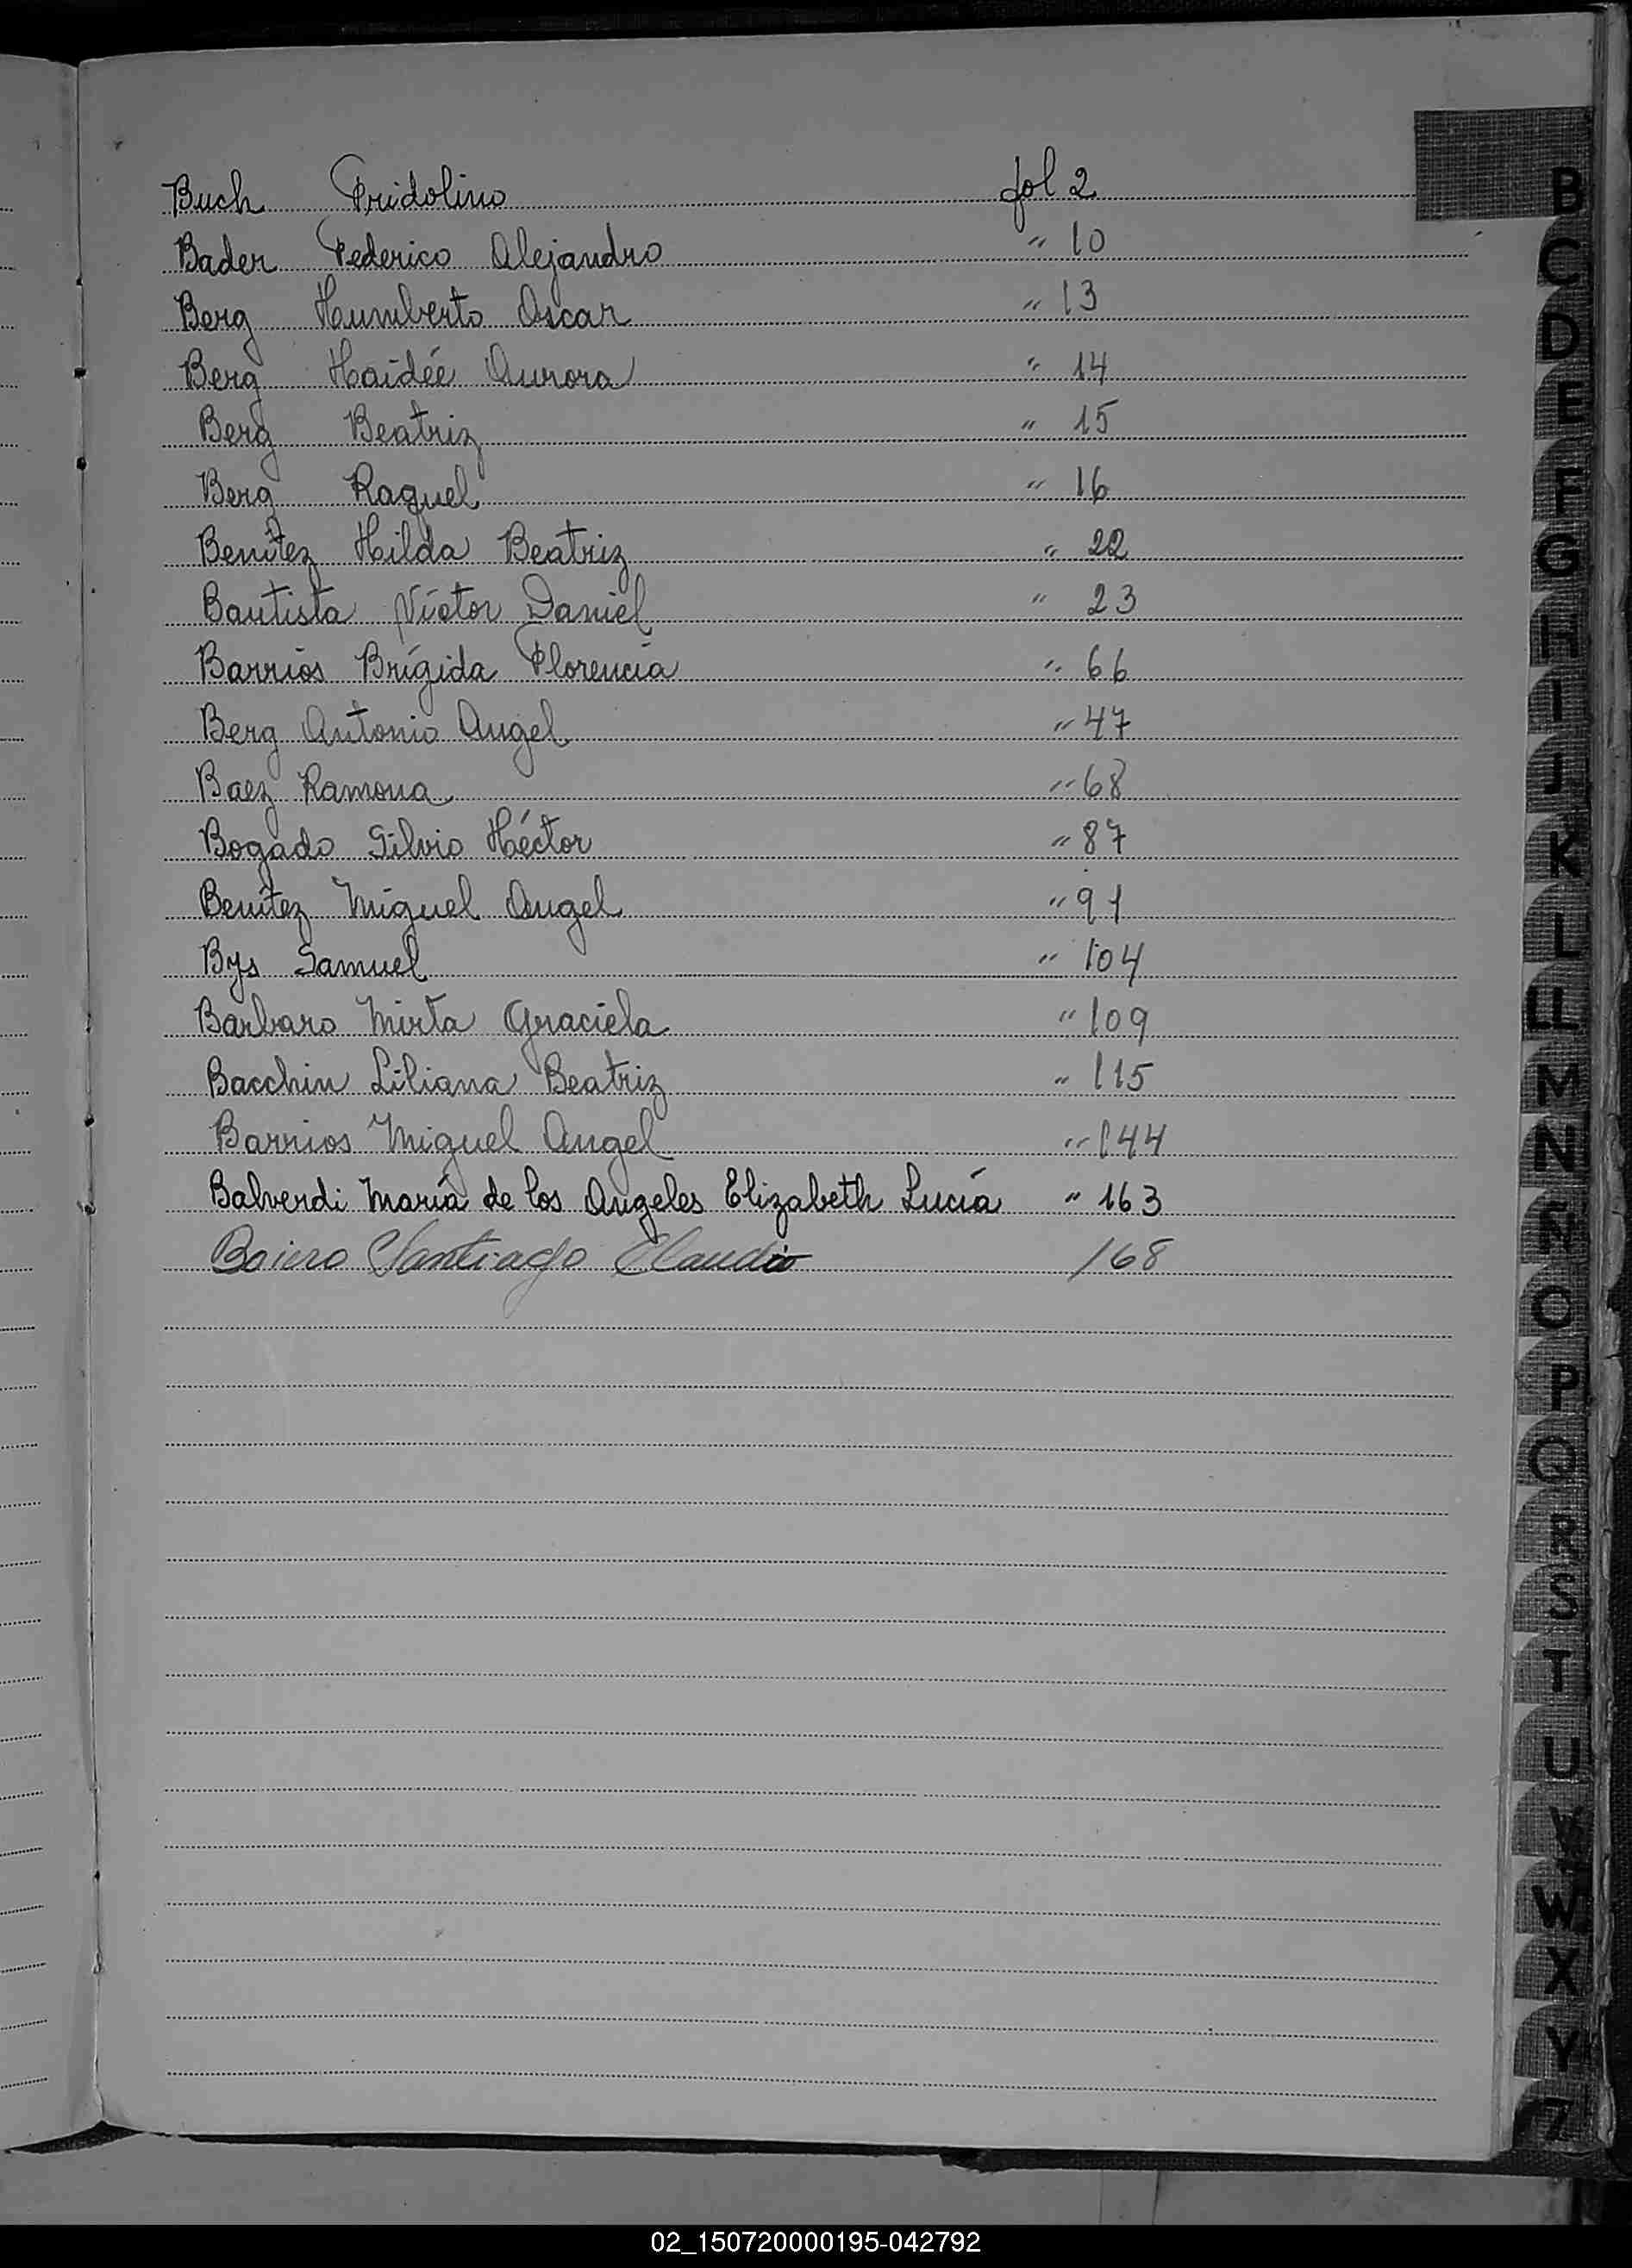 Buch Fridolino fol 2
Bader Federico Alejandro " 10
Berg Humberto Oscar " 13
Berg Haidée Aurora " 14
Berg Beatriz " 15
Berg Raquel " 16
Benítez Hilda Beatriz " 22
Bautista Víctor Daniel " 23
Barrios Brígida Florencia " 66
Berg Antonio Angel " 47
Baez Ramona " 68
Bogado Silvio Héctor " 87
Benítez Miguel Angel " 91
Bys Samuel " 104
Barbaro Mirta Graciela " 109
Bacchin Liliana Beatriz " 115
Barrios Miguel Angel " 144
Balverdi María de los Angeles Elizabeth Lucía " 163
Boiero Santiago Claudio 168
B
C
D
E
F
G
H
I
J
K
L
LL
M
N
Ñ
O
P
Q
R
S
T
U
V
W
X
Y
Z
02_150720000195-042792